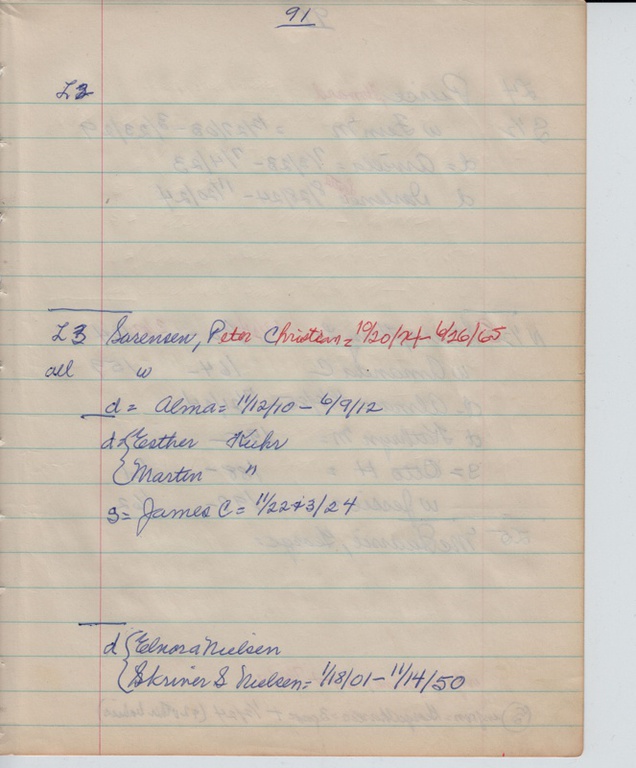 91
L3
L3 Sorensen, Peter Christian = 10/20/74 - 6/26/65
all w
d = Alma = 11/12/10 - 6/9/12
d { Esther Kuhr
{ Martin "
s = James C = 11/22 + 3/24
d { Elnora Nielsen
{ Skriner S Nielsen = 1/18/01 - 11/14/50